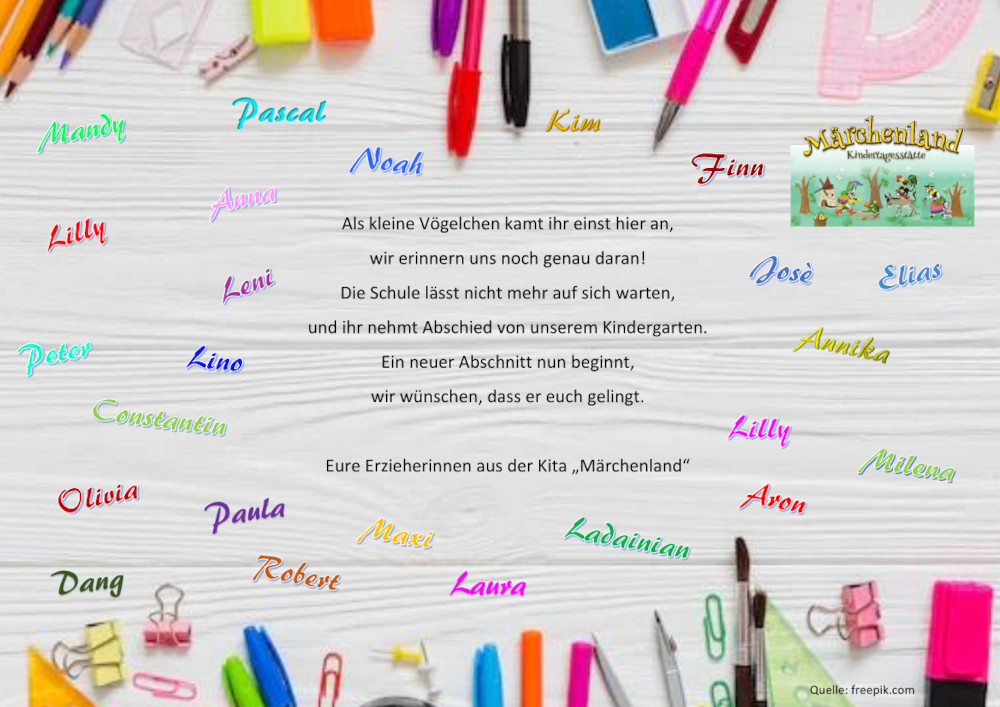 Pascal
Mandy
Kim
Noah
Finn
Märchenland
Kindertagesstätte
Anna
Lilly
Leni
Als kleine Vögelchen kamt ihr einst hier an,
wir erinnern uns noch genau daran!
Die Schule lässt nicht mehr auf sich warten,
und ihr nehmt Abschied von unserem Kindergarten.
Ein neuer Abschnitt nun beginnt,
wir wünschen, dass er euch gelingt.
Josè
Elias
Annika
Peter
Lino
Constantin
Lilly
Milena
Eure Erzieherinnen aus der Kita „Märchenland“
Olivia
Paula
Aron
Maxi
Ladainian
Dang
Robert
Laura
Quelle: freepik.com